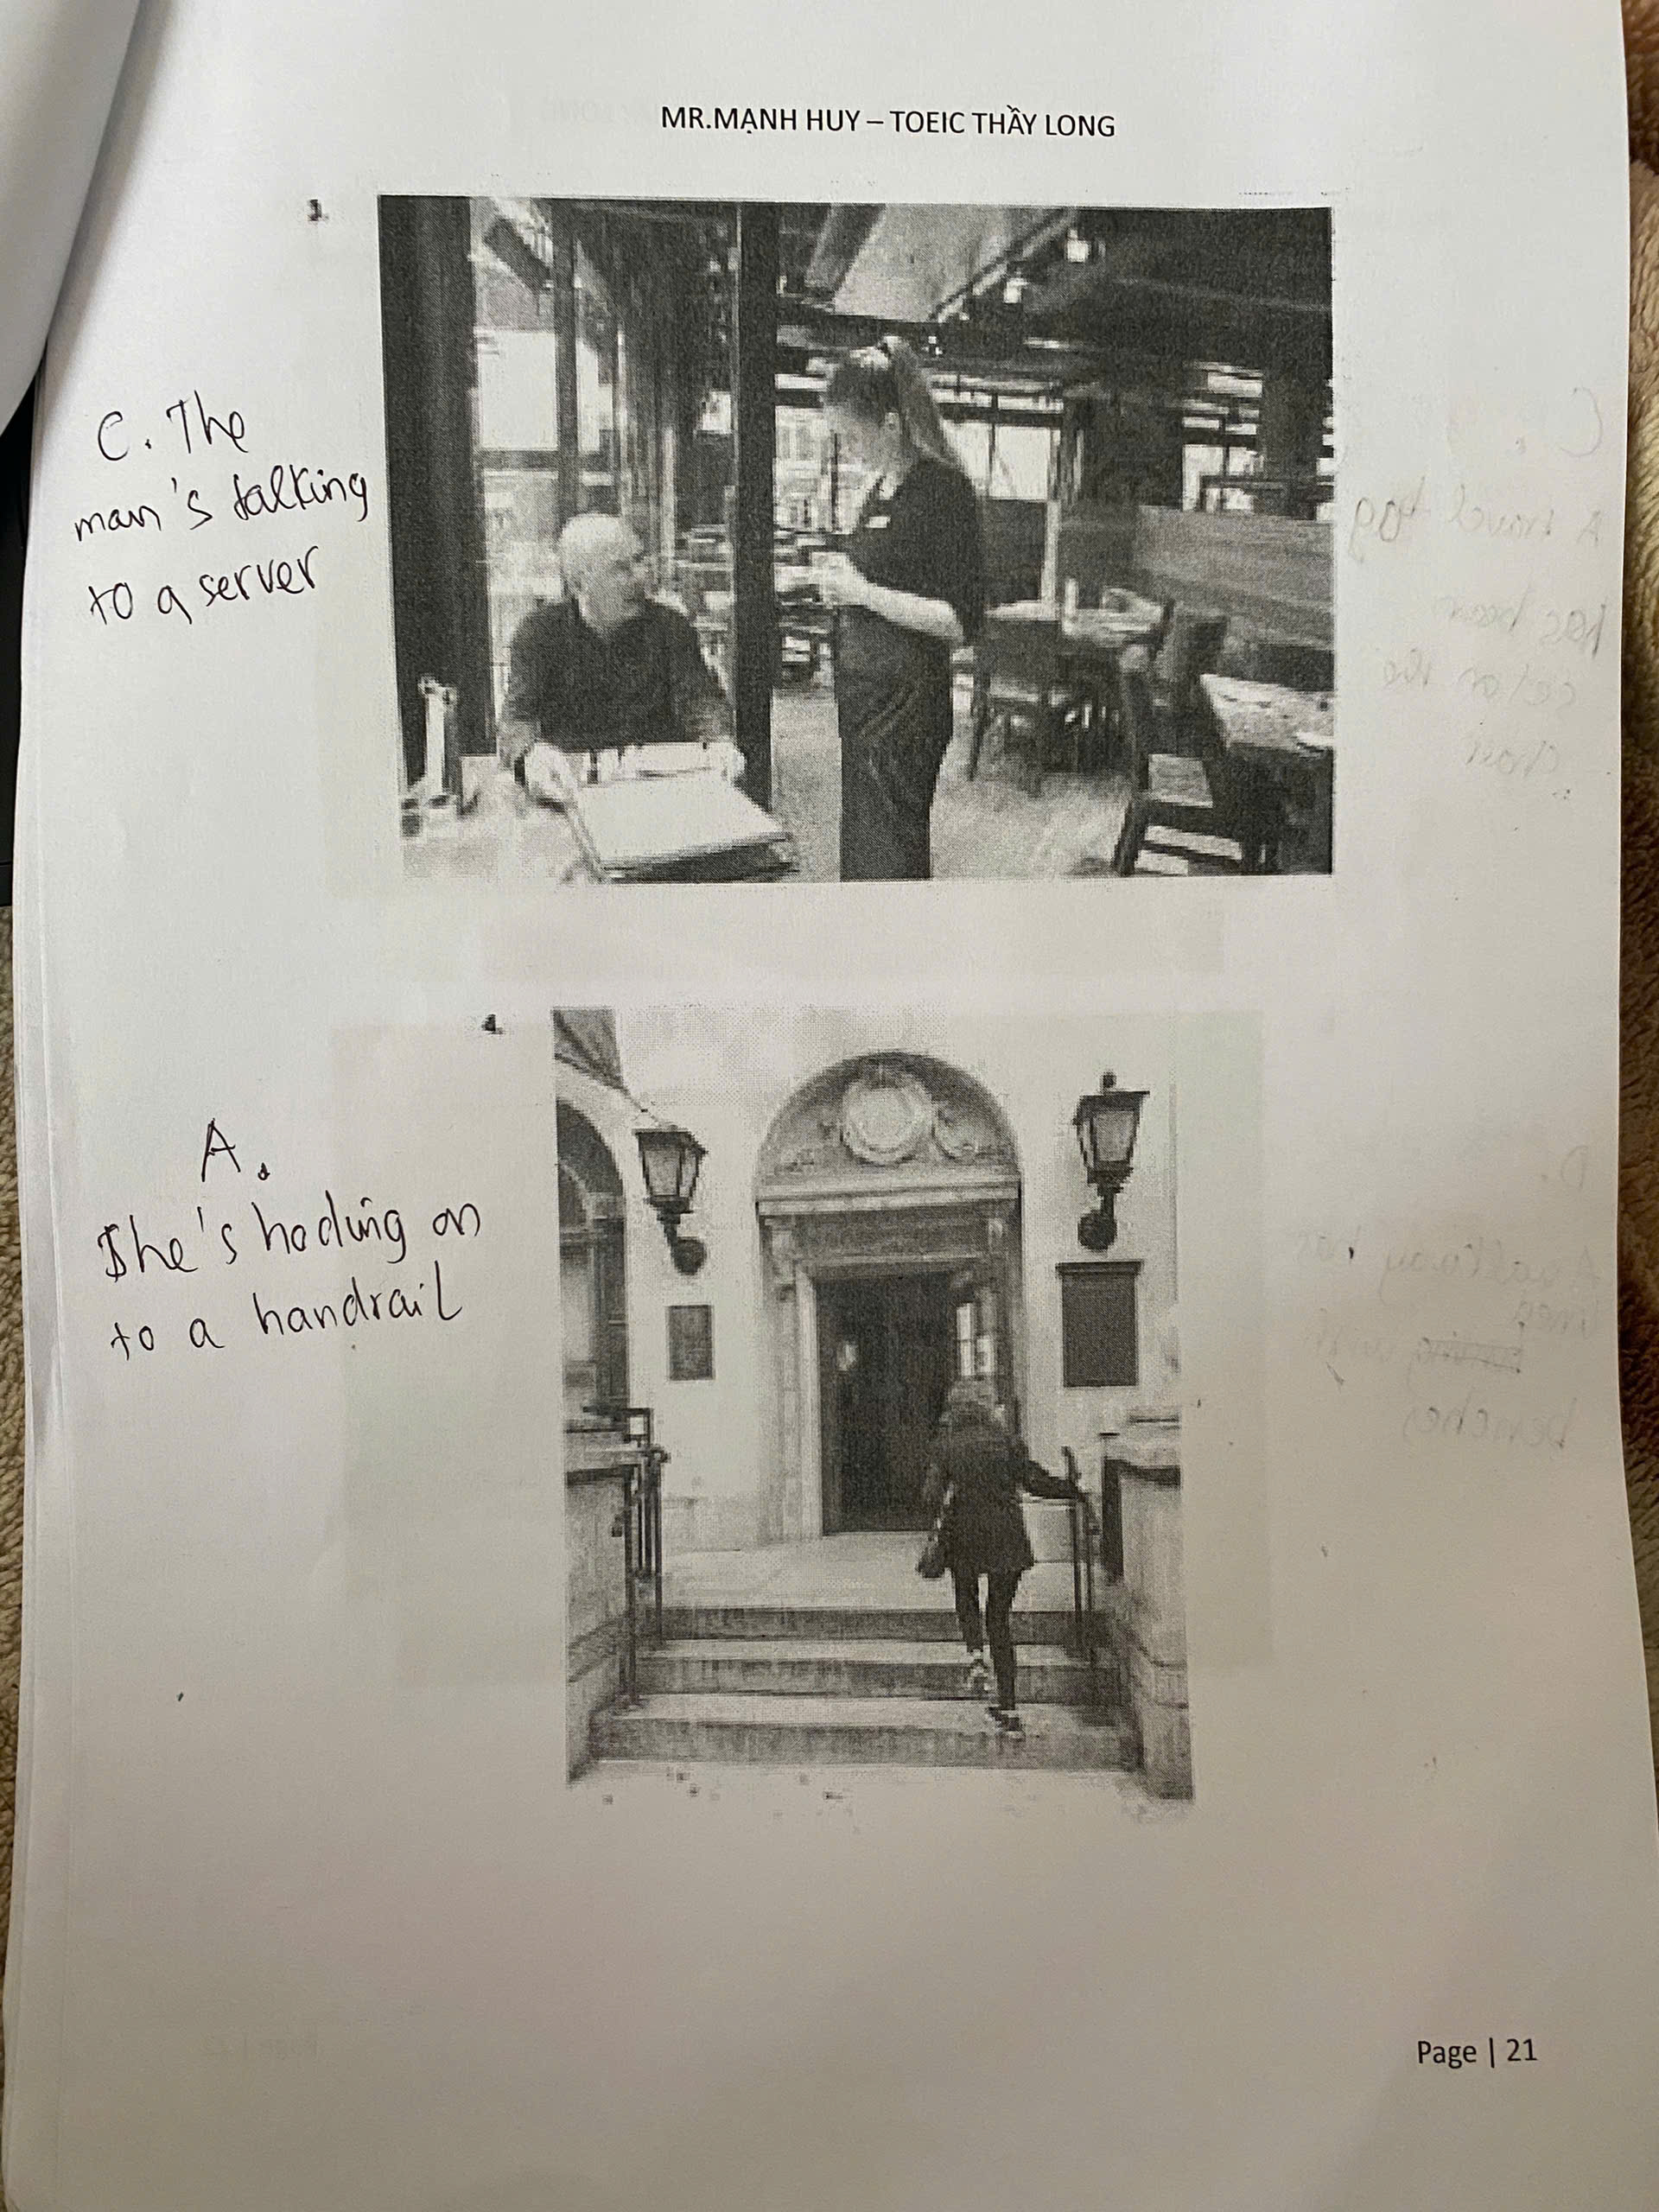 MR.MẠNH HUY – TOEIC THẦY LONG
3.
C. The
man's talking
to a server
4.
A.
She's hoding on
to a handrail
Page | 21